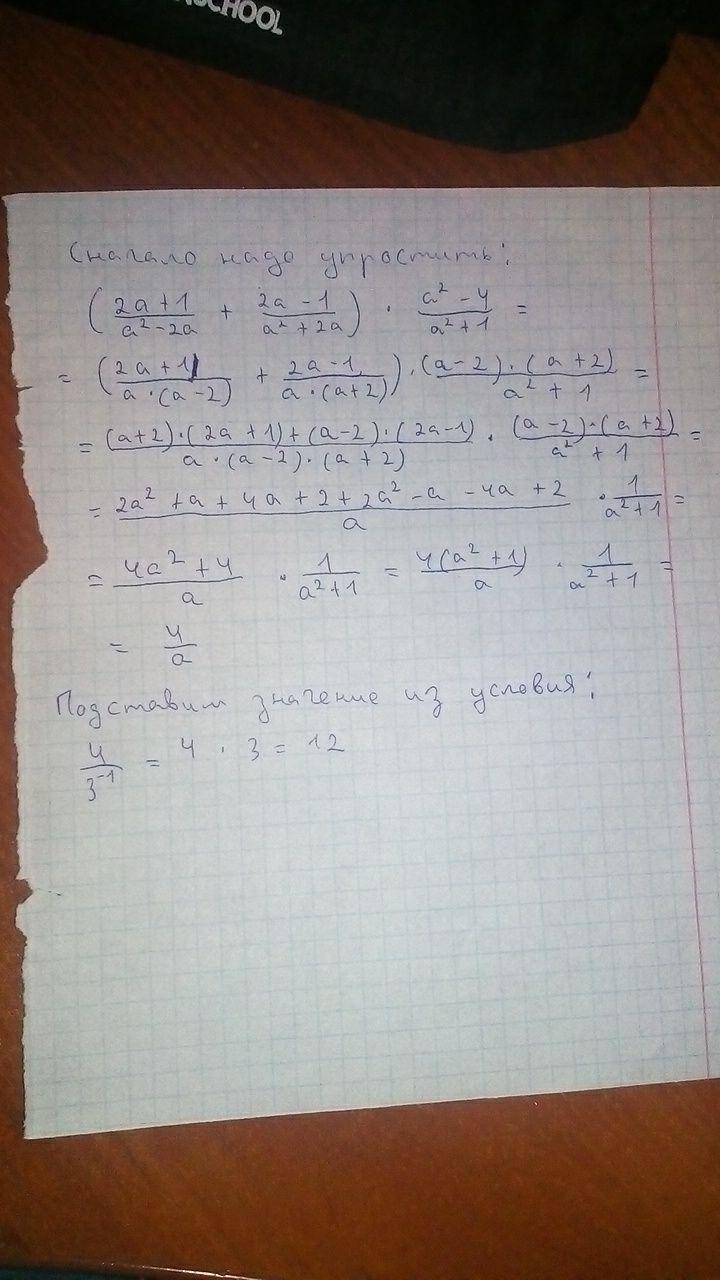 SCHOOL
Сначало надо упростить:
(\frac{2a+1}{a²-2a} + \frac{2a-1}{a²+2a}) · \frac{a²-4}{a²+1} =
= (\frac{2a+1}{a·(a-2)} + \frac{2a-1}{a·(a+2)}) · \frac{(a-2)·(a+2)}{a²+1} =
= \frac{(a+2)·(2a+1)+(a-2)·(2a-1)}{a·(a-2)·(a+2)} · \frac{(a-2)·(a+2)}{a²+1} =
= \frac{2a²+a+4a+2+2a²-a-4a+2}{a} · \frac{1}{a²+1} =
= \frac{4a²+4}{a} · \frac{1}{a²+1} = \frac{4(a²+1)}{a} · \frac{1}{a²+1} =
= \frac{4}{a}
Подставим значение из условия:
\frac{4}{3⁻¹} = 4 · 3 = 12